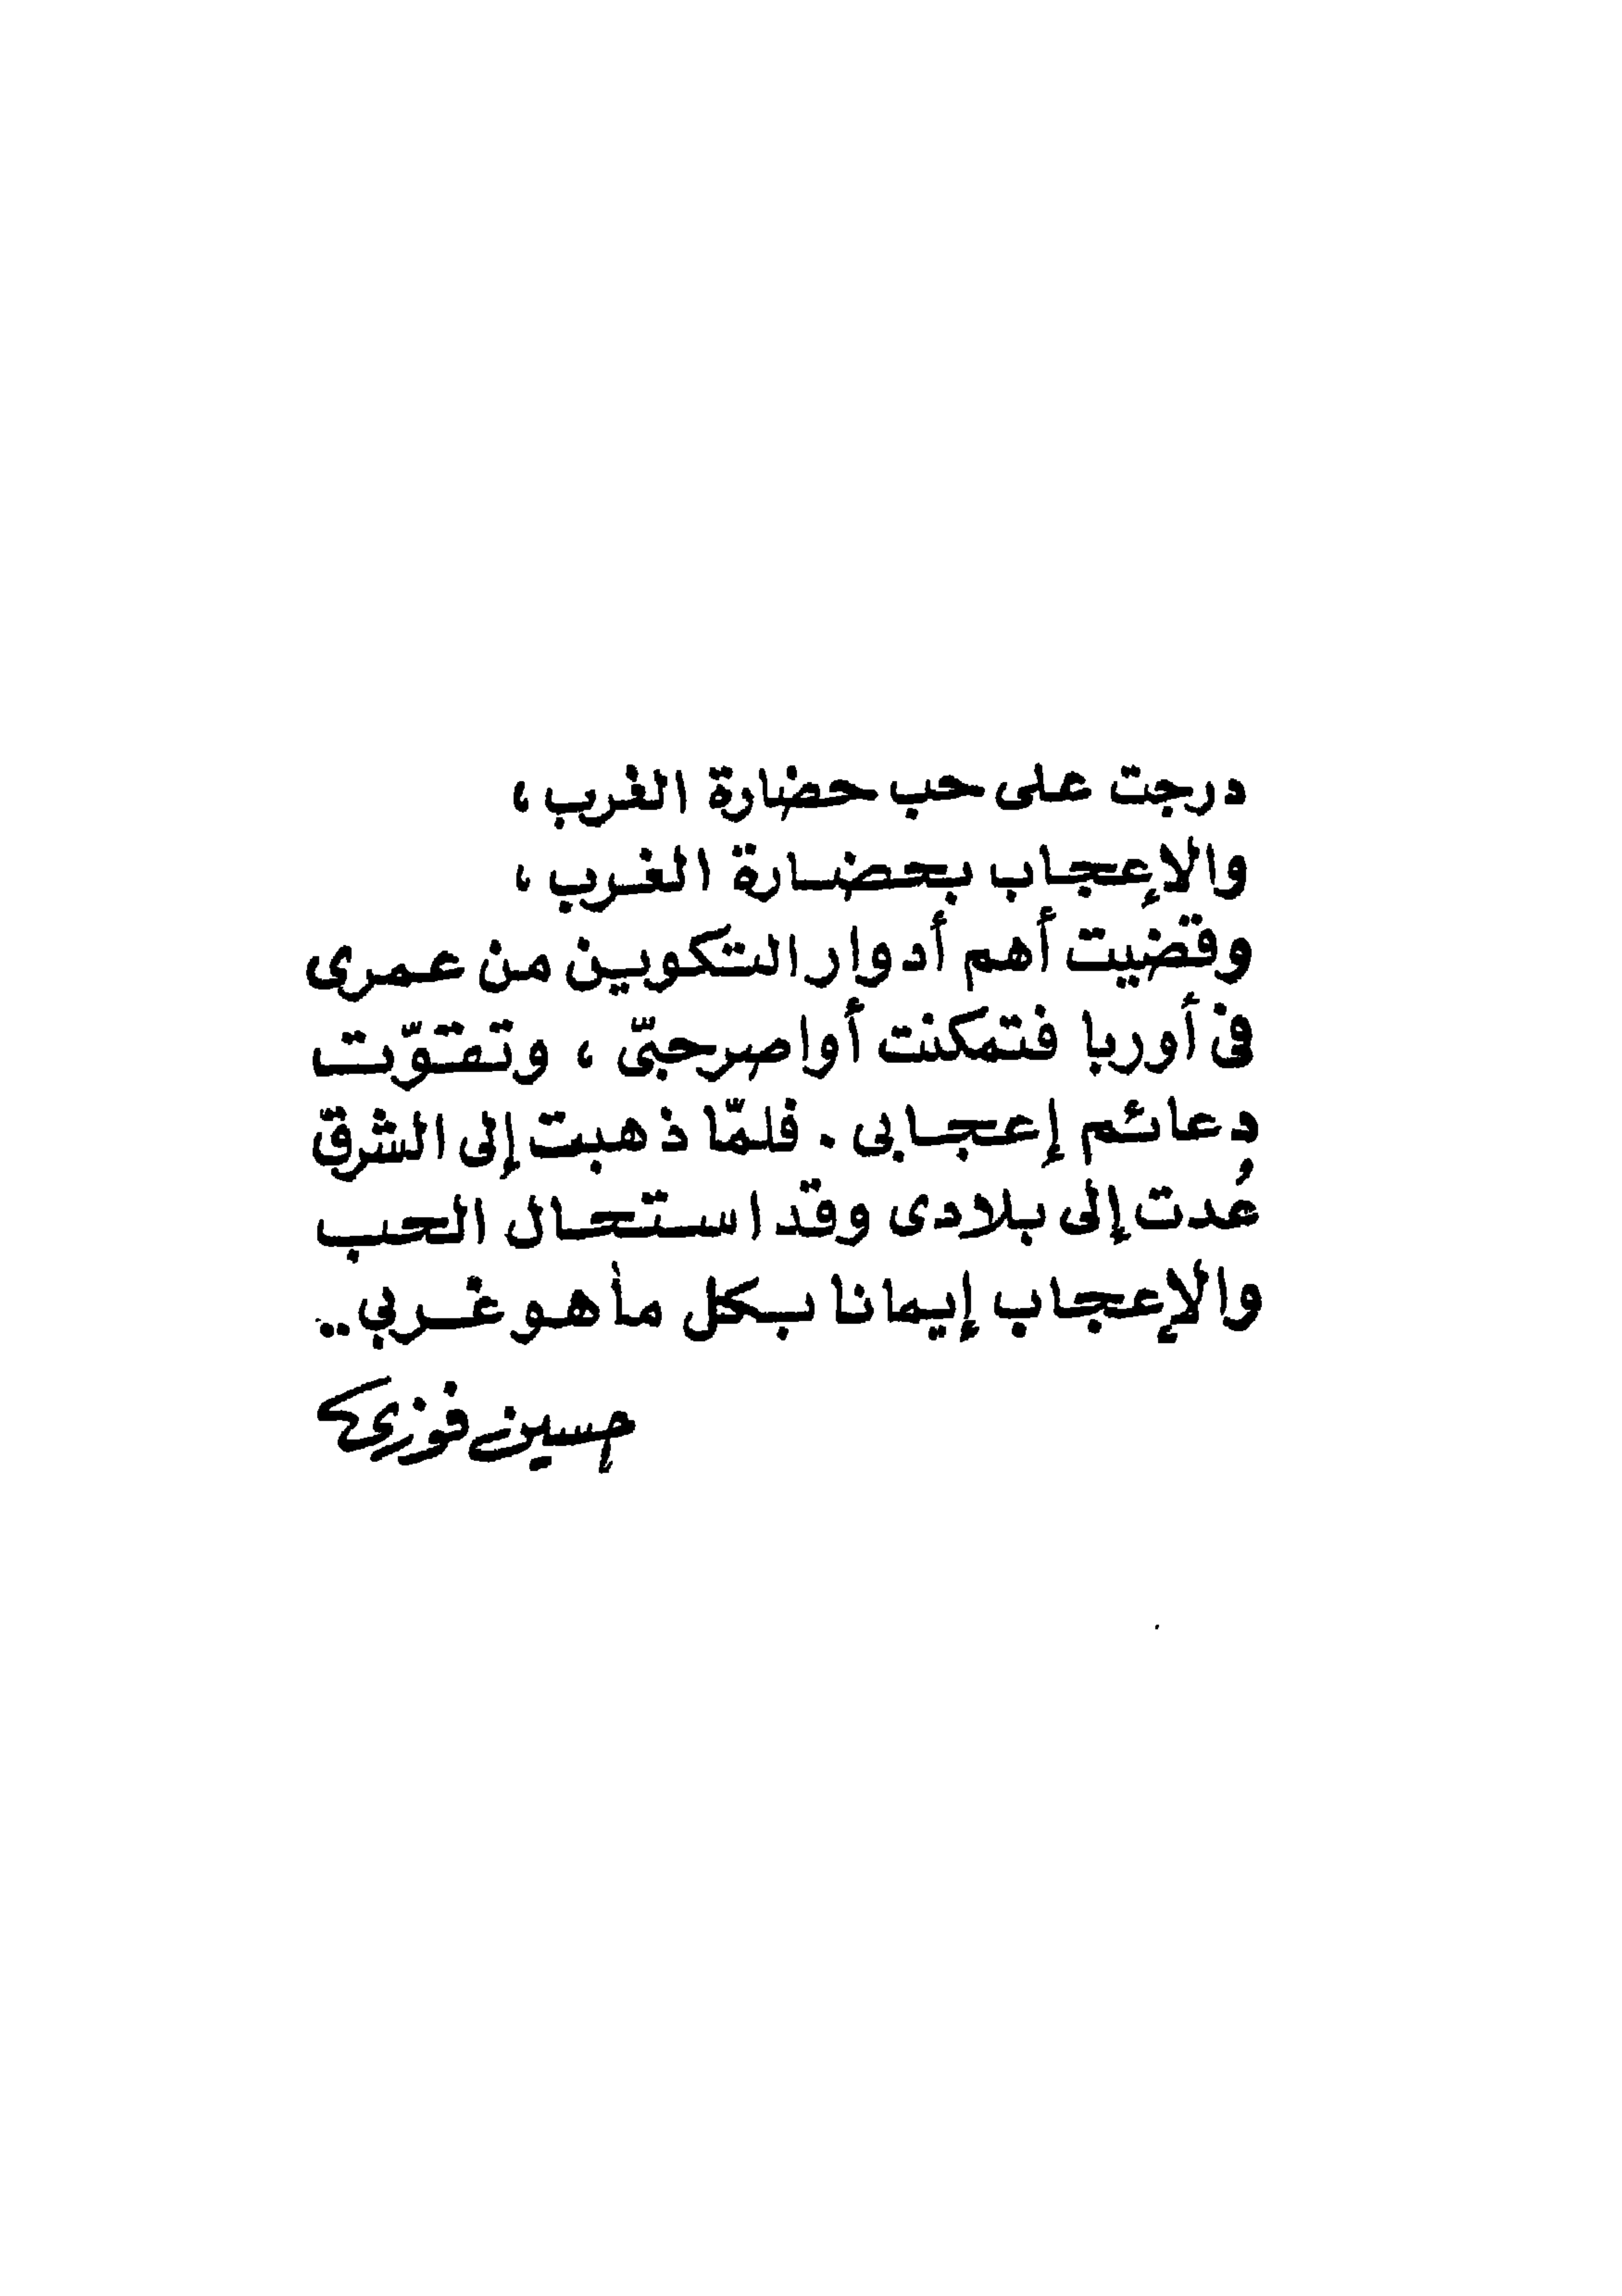 درجت على حب حضارة الغرب ،
والإعجاب بحضارة الغرب ،
وقضيت أهم أدوار التكوين من عمرى
فى أوربا فتمكنت أواصر حبّى ، وتقوّت
دعائم إعجابى . فلمّا ذهبت إلى الشرق
عُدت إلى بلادى وقد استحال الحب
والإعجاب إيمانا بكل ما هو غربي ..
حسين فوزى